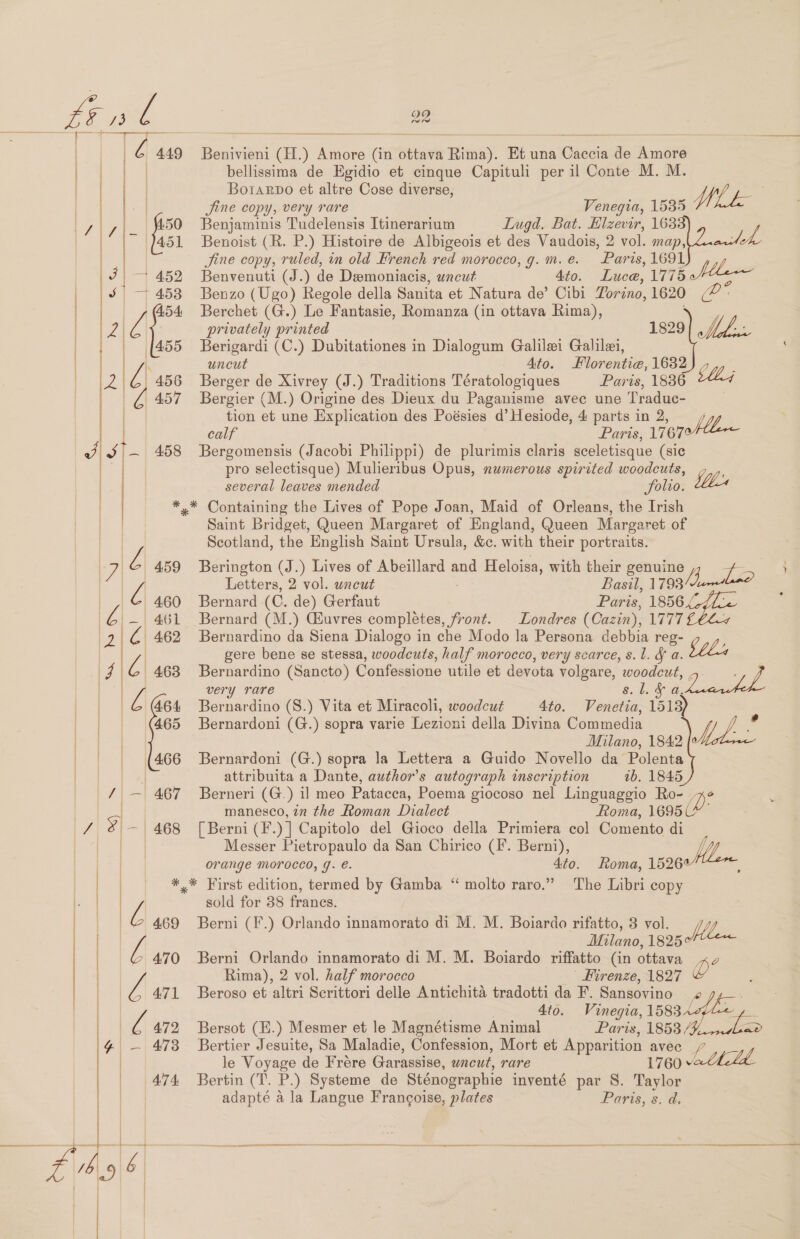 £8 13 6
22
6 449 Benivieni (H.) Amore (in ottava Rima). Et una Caccia de Amore
bellissima de Egidio et cinque Capituli per il Conte M. M.
BOIARDO et altre Cose diverse,
fine copy, very rare Venegia, 1535
1 1 - 450 Benjaminis Tudelensis Itinerarium Lugd. Bat. Elzevir, 1633
451 Benoist (R. P.) Histoire de Albigeois et des Vaudois, 2 vol. map,
fine copy, ruled, in old French red morocco, g. m. e. Paris, 1691
3 - 452 Benvenuti (J.) de Dæmoniacis, uncut 4to. Lucæ, 1775 Allen
5 - 453 Benzo (Ugo) Regole della Sanita et Natura de' Cibi Torino, 1620
2 6 454 Berchet (G.) Le Fantasie, Romanza (in ottava Rima),
privately printed 1829 Molini
455 Berigardi (C.) Dubitationes in Dialogum Galilæi Galilæi,
uncut 4to. Florentiæ, 1632
2 6 456 Berger de Xivrey (J.) Traditions Tératologiques Paris, 1836 Ellis
6 457 Bergier (M.) Origine des Dieux du Paganisme avec une Traduc-
tion et une Explication des Poésies d'Hesiode, 4 parts in 2,
calf Paris, 1767 Allen
3 5 - 458 Bergomensis (Jacobi Philippi) de plurimis claris sceletisque (sic
pro selectisque) Mulieribus Opus, numerous spirited woodcuts,
several leaves mended folio. Ellis
*** Containing the Lives of Pope Joan, Maid of Orleans, the Irish
Saint Bridget, Queen Margaret of England, Queen Margaret of
Scotland, the English Saint Ursula, &c. with their portraits.
7 6 459 Berington (J.) Lives of Abeillard and Heloisa, with their genuine
Letters, 2 vol. uncut Basil, 1793
6 460 Bernard (C. de) Gerfaut Paris, 1856
6 - 461 Bernard (M.) Œuvres complètes, front. Londres (Cazin), 1777 Ellis
2 6 462 Bernardino da Siena Dialogo in che Modo la Persona debbia reg-
gere bene se stessa, woodcuts, half morocco, very scarce, s. l. & a. Ellis
4 6 463 Bernardino (Sancto) Confessione utile et devota volgare, woodcut,
very rare s. l. & a.
6 464 Bernardino (S.) Vita et Miracoli, woodcut 4to. Venetia, 1513
465 Bernardoni (G.) sopra varie Lezioni della Divina Commedia
Milano, 1842 Molini
466 Bernardoni (G.) sopra la Lettera a Guido Novello da Polenta
attribuita a Dante, author's autograph inscription ib. 1845
1 - 467 Berneri (G.) il meo Patacca, Poema giocoso nel Linguaggio Ro-
manesco, in the Roman Dialect Roma, 1695
1 8 - 468 [Berni (F.)] Capitolo del Gioco della Primiera col Comento di
Messer Pietropaulo da San Chirico (F. Berni),
orange morocco, g. e. 4to. Roma, 1526 Allen
*** First edition, termed by Gamba “molto raro.” The Libri copy
sold for 38 francs.
6 469 Berni (F.) Orlando innamorato di M. M. Boiardo rifatto, 3 vol.
Milano, 1825 Allen
6 470 Berni Orlando innamorato di M. M. Boiardo riffatto (in ottava
Rima), 2 vol. half morocco Firenze, 1827
6 471 Beroso et altri Scrittori delle Antichità tradotti da F. Sansovino
4to. Vinegia, 1583
6 472 Bersot (E.) Mesmer et le Magnétisme Animal Paris, 1853
4 - 473 Bertier Jesuite, Sa Maladie, Confession, Mort et Apparition avec
le Voyage de Frère Garassise, uncut, rare 1760
474 Bertin (T. P.) Systeme de Sténographie inventé par S. Taylor
adapté à la Langue Françoise, plates Paris, s. d.
£ 16 9 6